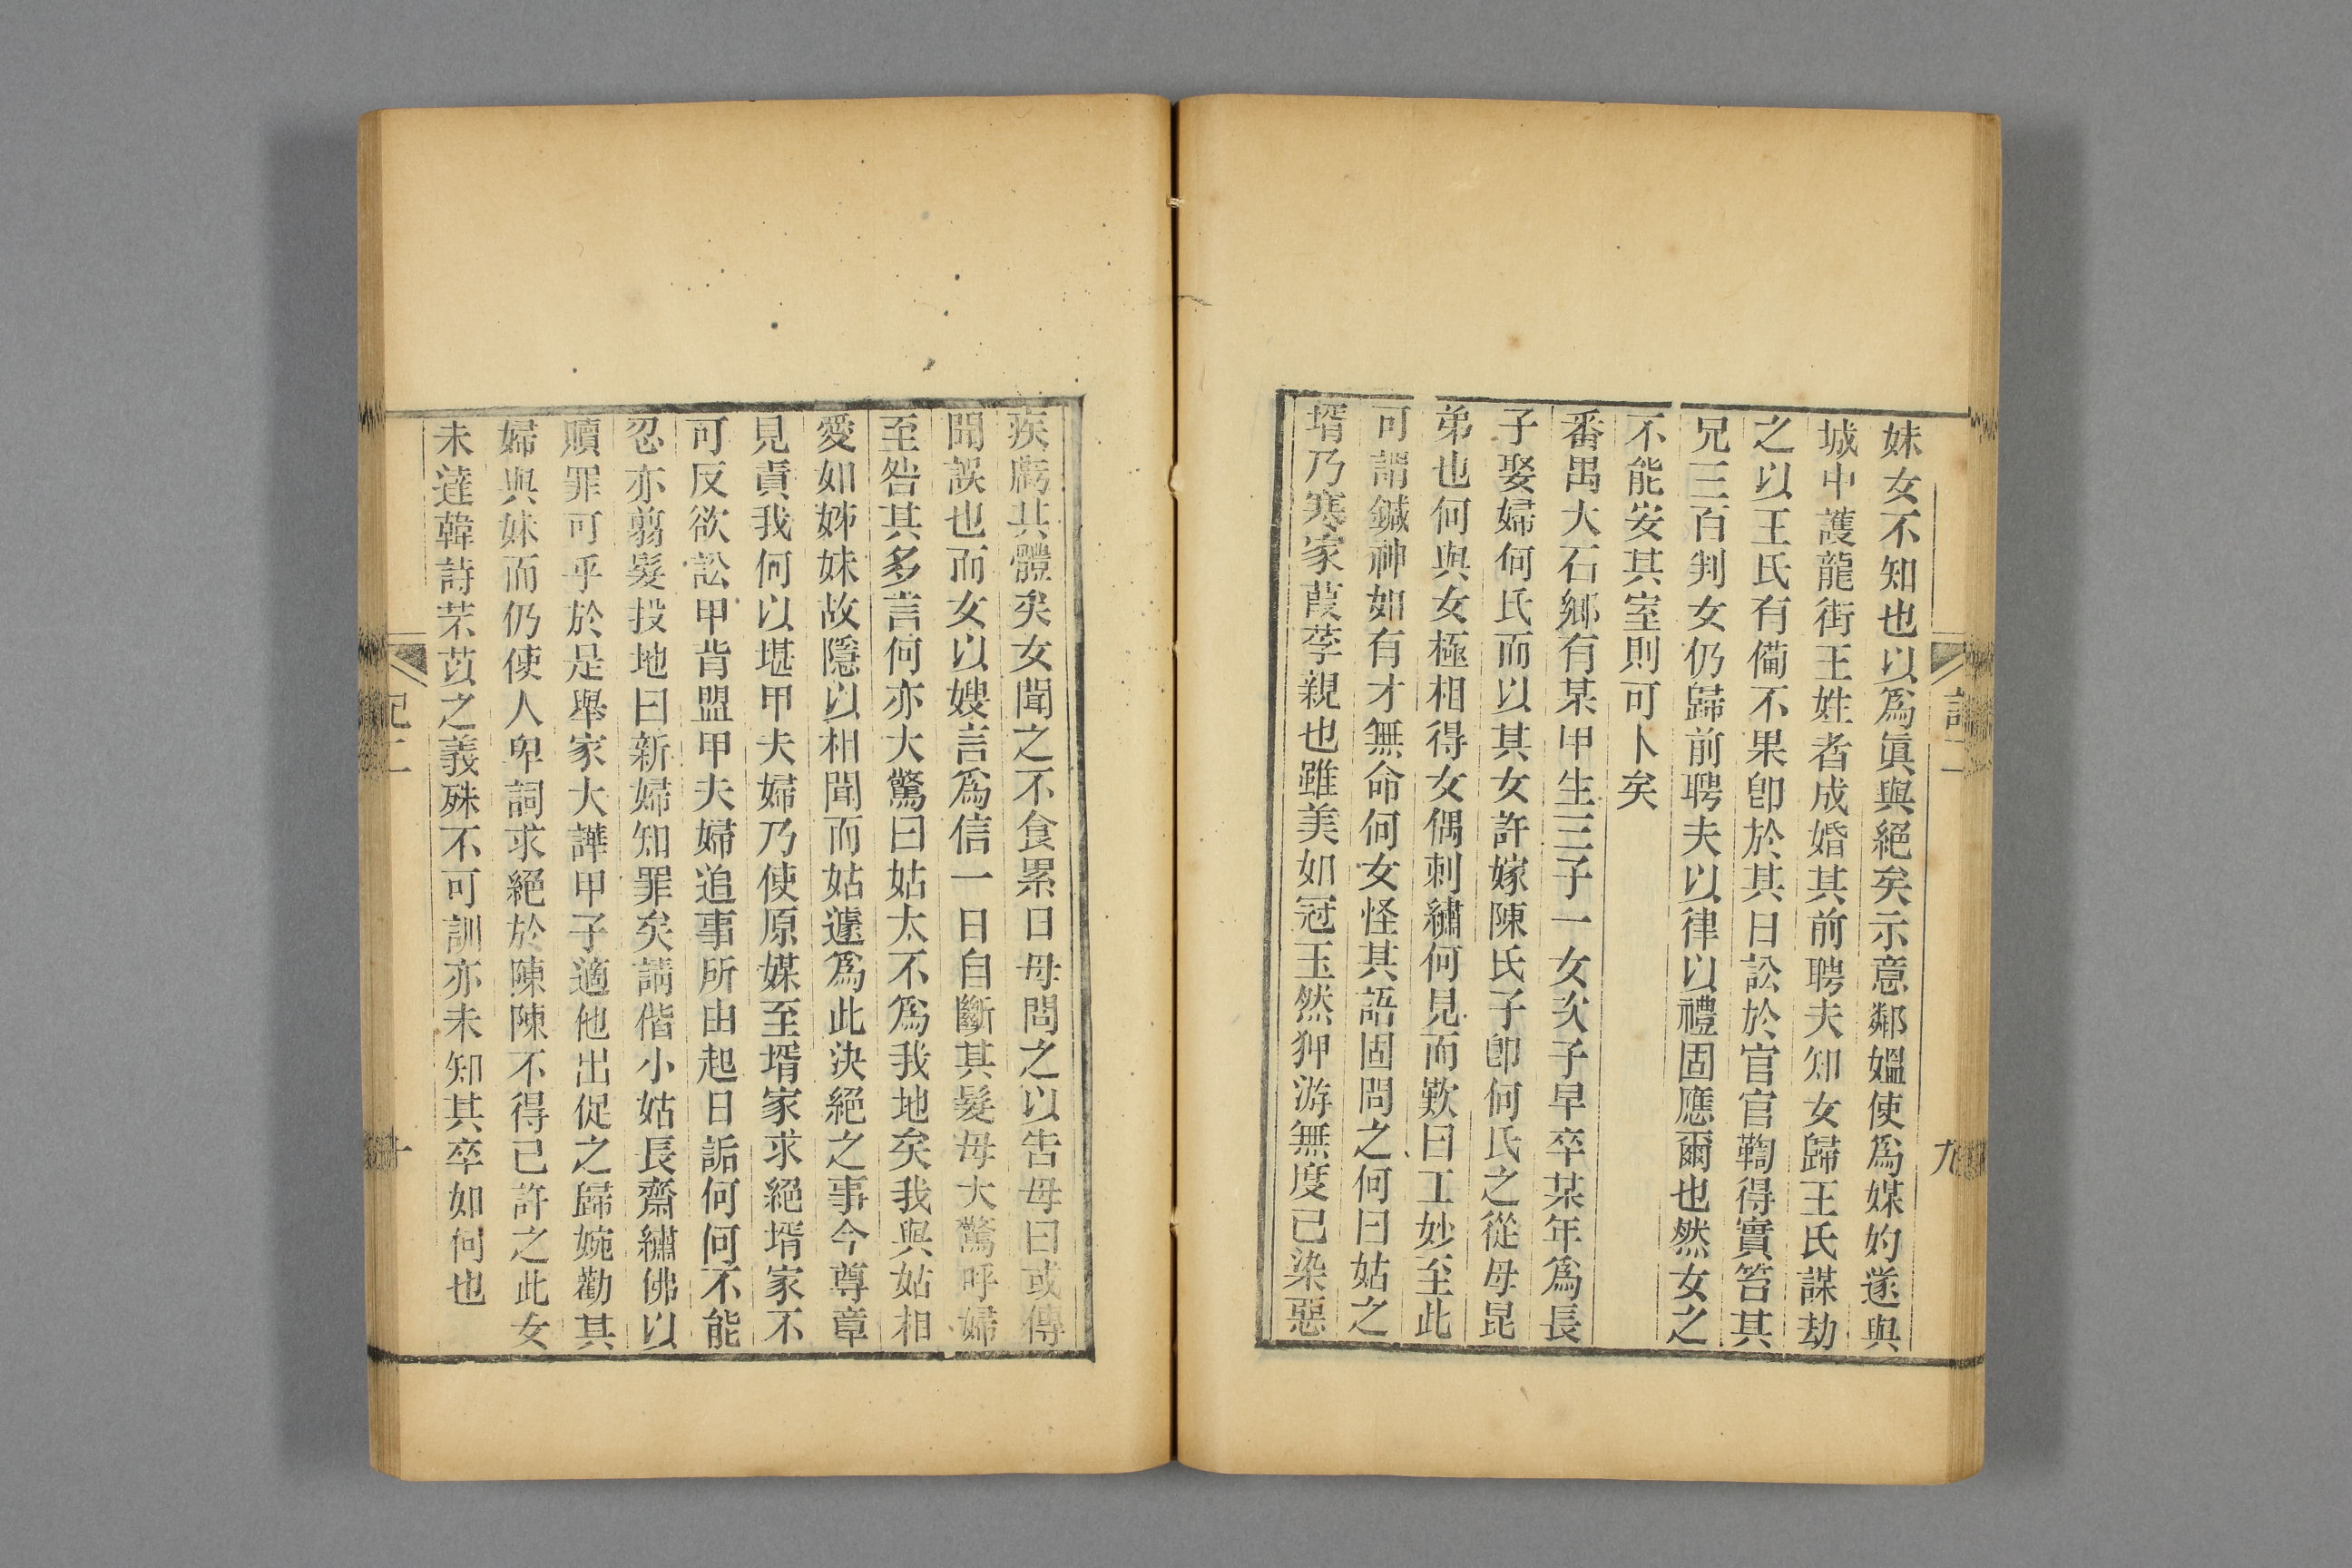 妹女不知也以爲眞與絕矣示意鄰媼使爲媒妁遂與
城中護龍街王姓者成婚其前聘夫知女歸王氏謀劫
之以王氏有備不果卽於其日訟於官官鞫得實笞其
兄三百判女仍歸前聘夫以律以禮固應爾也然女之
不能安其室則可卜矣
番禺大石鄉有某甲生三子一女次子早卒某年爲長
子娶婦何氏而以其女許嫁陳氏子卽何氏之從母昆
弟也何與女極相得女偶刺繡何見而歎曰工妙至此
可謂鍼神如有才無命何女怪其語固問之何曰姑之
壻乃寒家葭莩親也雖美如冠玉然狎游無度已染惡
疾腐其體矣女聞之不食累日母問之以告母曰或傳
聞誤也而女以嫂言爲信一日自斷其髮母大驚呼婦
至咎其多言何亦大驚曰姑太不爲我地矣我與姑相
愛如姊妹故隱以相聞而姑遽爲此決絕之事今尊章
見責我何以堪甲夫婦乃使原媒至壻家求絕壻家不
可反欲訟甲背盟甲夫婦追事所由起日詬何何不能
忍亦翦髮投地曰新婦知罪矣請偕小姑長齋繡佛以
贖罪可乎於是舉家大譁甲子適他出促之歸婉勸其
婦與妹而仍使人卑詞求絕於陳陳不得已許之此女
未達韓詩芣苢之義殊不可訓亦未知其卒如何也
九
記二
十